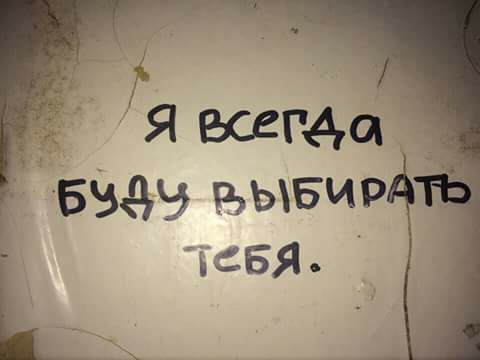 Я всегда
буду выбирать
тебя.